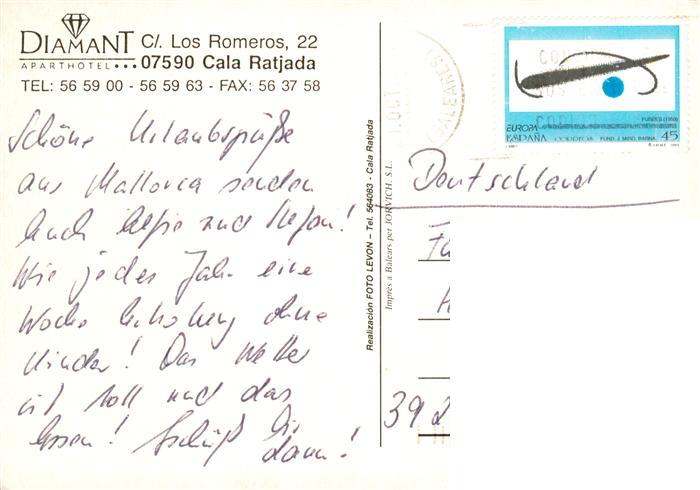 DIAMANT C/. Los Romeros, 22
APARTHOTEL ••• 07590 Cala Ratjada
TEL: 56 59 00 - 56 59 63 - FAX: 56 37 58
Schöne Urlaubsgrüße
aus Mallorca senden
Euch und Stefan!
Wie jedes Jahr eine
Woche Erholung ohne
Kinder! Das Wetter
ist toll und das
Essen! Tschüß bis
dann!
Realización FOTO LEVON - Tel. 564083 - Cala Ratjada
Imprés a Balears per JORVICH, S.L.
BALEARES
FUSEES (1959)
EUROPA
ESPAÑA CORREOS FUND. J. MIRÓ. BARNA. 45
Deutschland
392